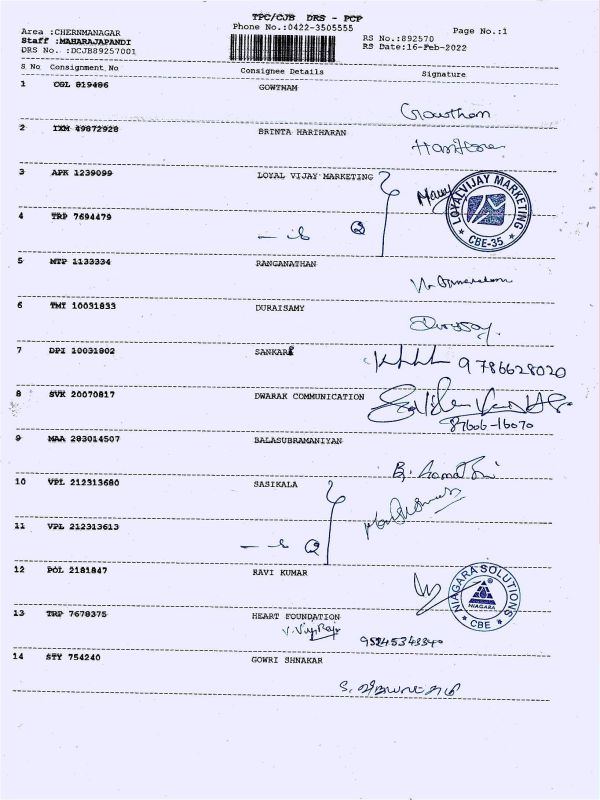 TPC/CJB DRS - PCP
Area :CHERNMANAGAR Phone No.:0422-3505555 Page No.:1
Staff :MAHARAJAPANDI RS No.:892570
DRS No. :DCJB89257001 RS Date:16-Feb-2022
S No Consignment No Consignee Details Signature
1 CBL 819486 GOWTHAM
Gowtham
2 IXM 49872928 BRINTA HARIHARAN
3 APK 1239099 LOYAL VIJAY MARKETING
LOYAL VIJAY MARKETING
CBE-35
4 TRP 7694479
5 MTP 1133334 RANGANATHAN
6 TMI 10031833 DURAISAMY
7 DPI 10031802 SANKAR
9786628020
8 SVK 20070817 DWARAK COMMUNICATION
87606-16070
9 MAA 283014507 BALASUBRAMANIYAN
10 VPL 212313680 SASIKALA
11 VPL 212313613
12 POL 2181847 RAVI KUMAR
NIAGARA SOLUTIONS
NIAGARA
CBE
13 TRP 7678375 HEART FOUNDATION
14 STY 754240 GOWRI SHNAKAR